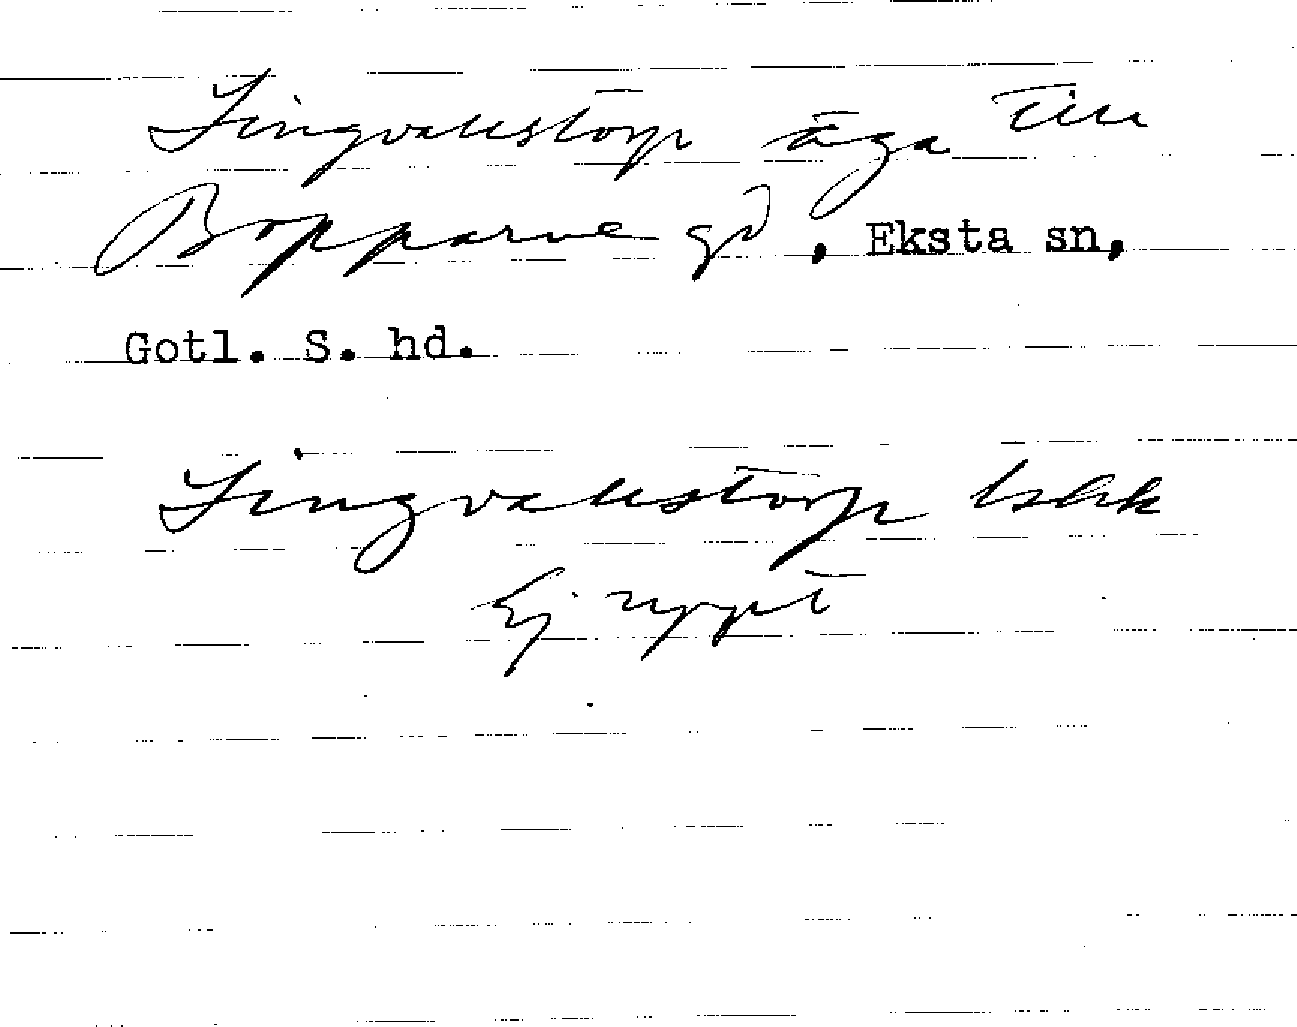 Lingvallstorp äga till
Bopparve gd, Eksta sn,
Gotl. S. hd.
Lingvallstorp
Ej uppt